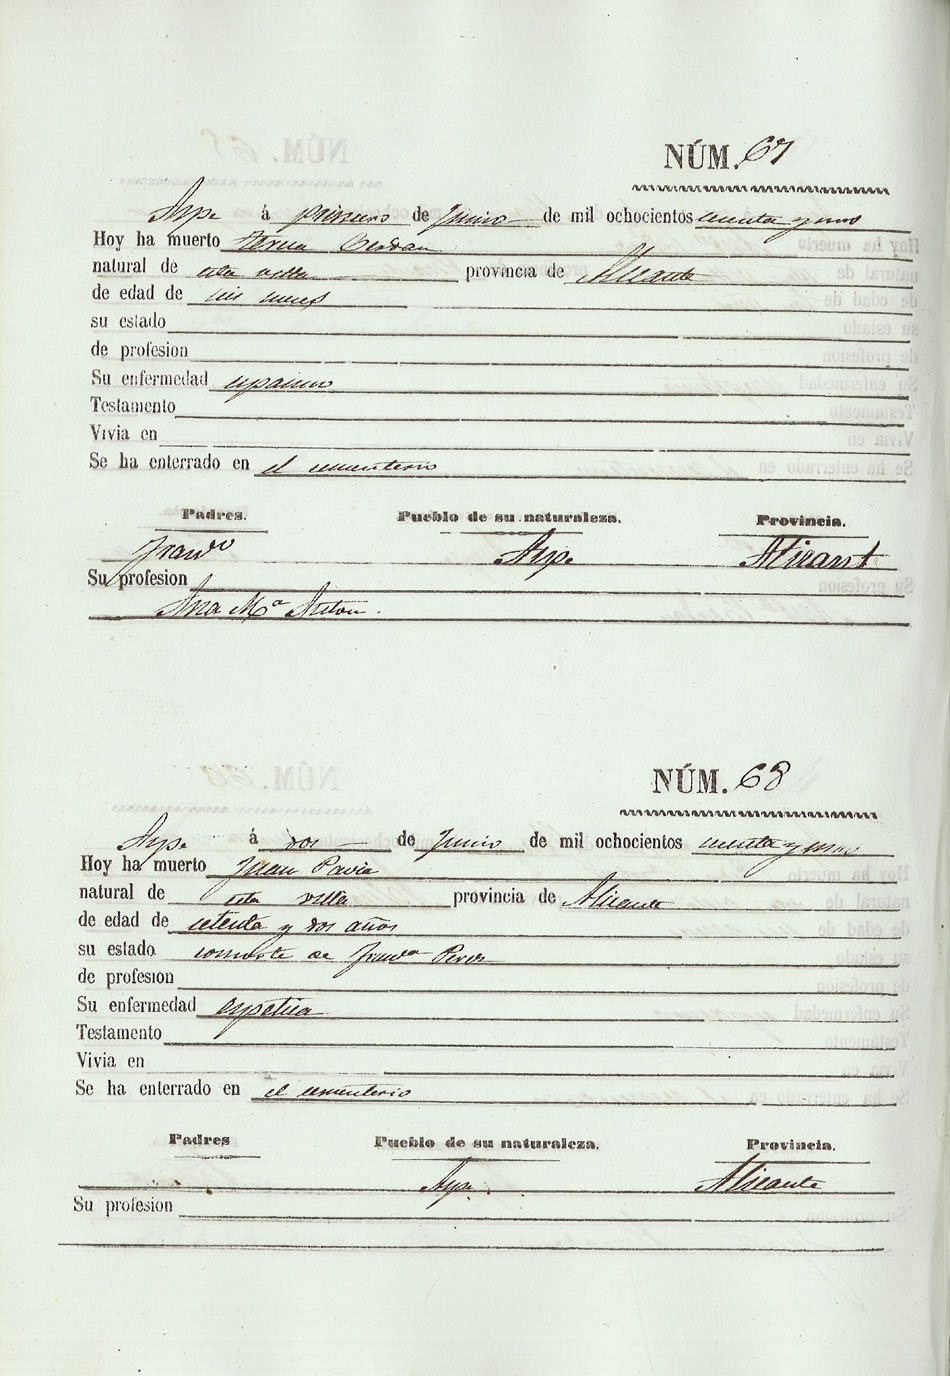 NÚM. 67
Aspe á primero de Junio de mil ochocientos
Hoy ha muerto
natural de esta villa provincia de Alicante
de edad de seis meses
su estado
de profesion
Su enfermedad espasmo
Testamento
Vivia en
Se ha enterrado en el cementerio
Padres. Pueblo de su naturaleza. Provincia.
Franco Asp. Alicant
Su profesion
Ana Ma
NÚM. 68
Aspe á dos de Junio de mil ochocientos
Hoy ha muerto Juan Pavia
natural de esta villa provincia de Alicante
de edad de setenta y dos años
su estado consorte de Franca Peres
de profesion
Su enfermedad
Testamento
Vivia en
Se ha enterrado en el cementerio
Padres Pueblo de su naturaleza. Provincia.
Asp. Alicante
Su profesion